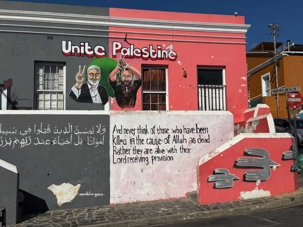 Unite Palestine
ولا تحسبن الذين قتلوا في سبيل
أمواتا بل أحياء عند ربهم
And never think of those who have been
killed in the cause of Allah as dead.
Rather they are alive with their
Lord receiving provision